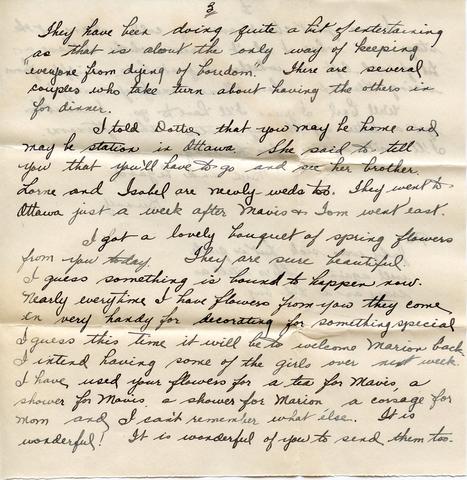 3
They have been doing quite a bit of entertaining
as that is about the only way of keeping
"everyone from dying of boredom." There are several
couples who take turn about having the others in
for dinner.
I told Dottie that you may be home and
may be station in Ottawa. She said to tell
you that you'll have to go and see her brother.
Lorne and Isobel are newly weds too. They went to
Ottawa just a week after Mavis & Tom went east.
I got a lovely bouquet of spring flowers
from you today. They are sure beautiful.
I guess something is bound to happen now.
Nearly everytime I have flowers from you they come
in very handy for decorating for something special
I guess this time it will be to welcome Marion back
I intend having some of the girls over next week.
I have used your flowers for a tea for Mavis, a
shower for Mavis, a shower for Marion a corsage for
mom and I can't remember what else. It is
wonderful! It is wonderful of you to send them too.